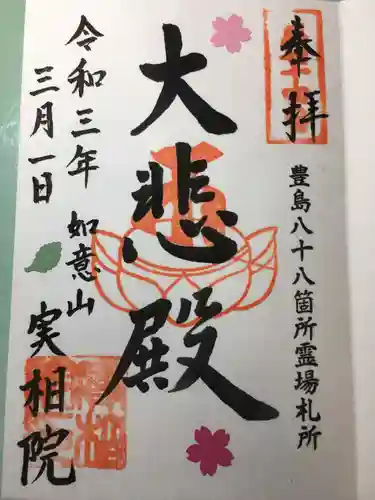 奉拝
豊島八十八箇所霊場札所
大悲殿
令和三年
三月一日
如意山
実相院